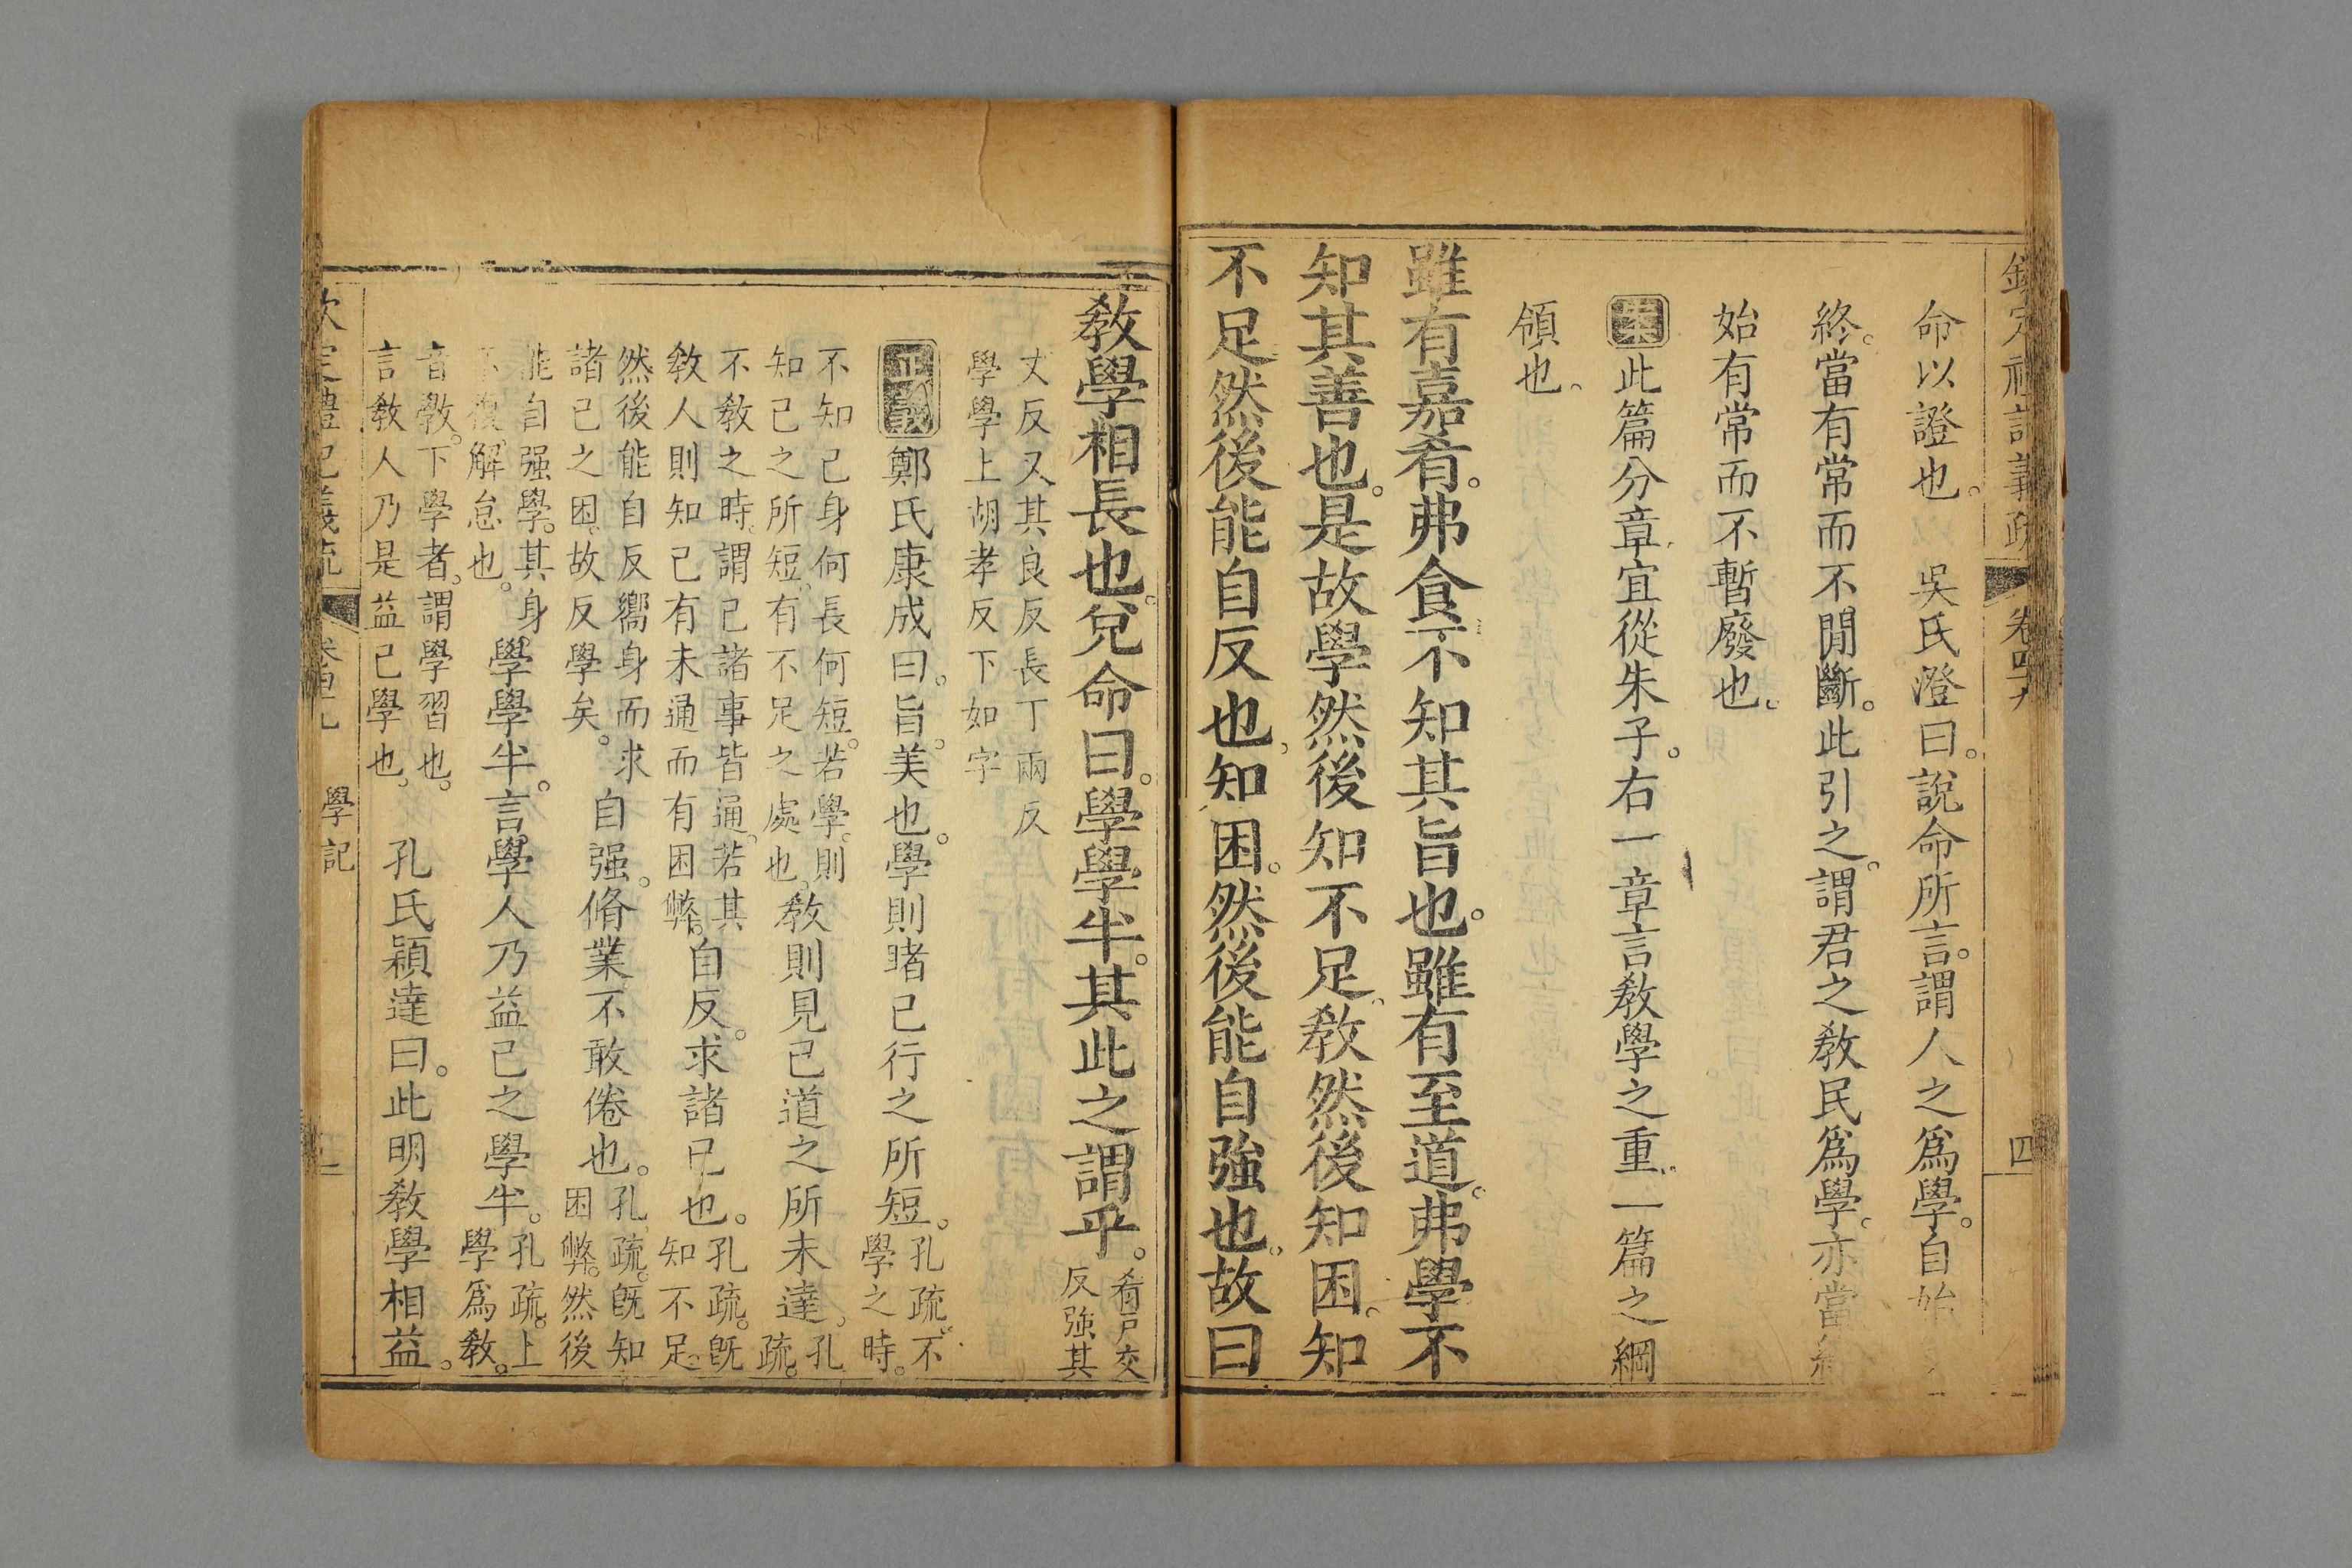 欽定禮記義疏 卷四十九 四
命以證也。 吳氏澄曰。說命所言。謂人之爲學。自始
終。當有常而不閒斷。此引之。謂君之敎民爲學。亦當
始有常而不暫廢也。
案此篇分章宜從朱子。右一章言敎學之重。一篇之綱
領也。
雖有嘉肴。弗食不知其旨也。雖有至道。弗學不
知其善也。是故學然後知不足。敎然後知困。知
不足。然後能自反也。知困。然後能自強也。故曰
敎學相長也。兌命曰。學學半。其此之謂乎。肴戶交
反強其
丈反又其良反長丁兩反
學學上胡孝反下如字
正義 鄭氏康成曰。旨。美也。學則睹己行之所短。孔疏。不
學之時。
不知己身何長何短。若學。則
知己之所短。有不足之處也。敎則見己道之所未達。孔
疏。
不敎之時。謂己諸事皆通。若其
敎人則知己有未通而有困弊。自反。求諸己也。孔疏。旣
知不足。
然後能自反嚮身而求
諸己之困。故反學矣。自强。脩業不敢倦也。孔疏。旣知
困弊。然後
能自强學。其身
不復解怠也。學學半。言學人乃益己之學半。孔疏。上
學爲敎。
音敎。下學者。謂學習也。
言敎人乃是益己學也。 孔氏穎達曰。此明敎學相益。
欽定禮記義疏 學記